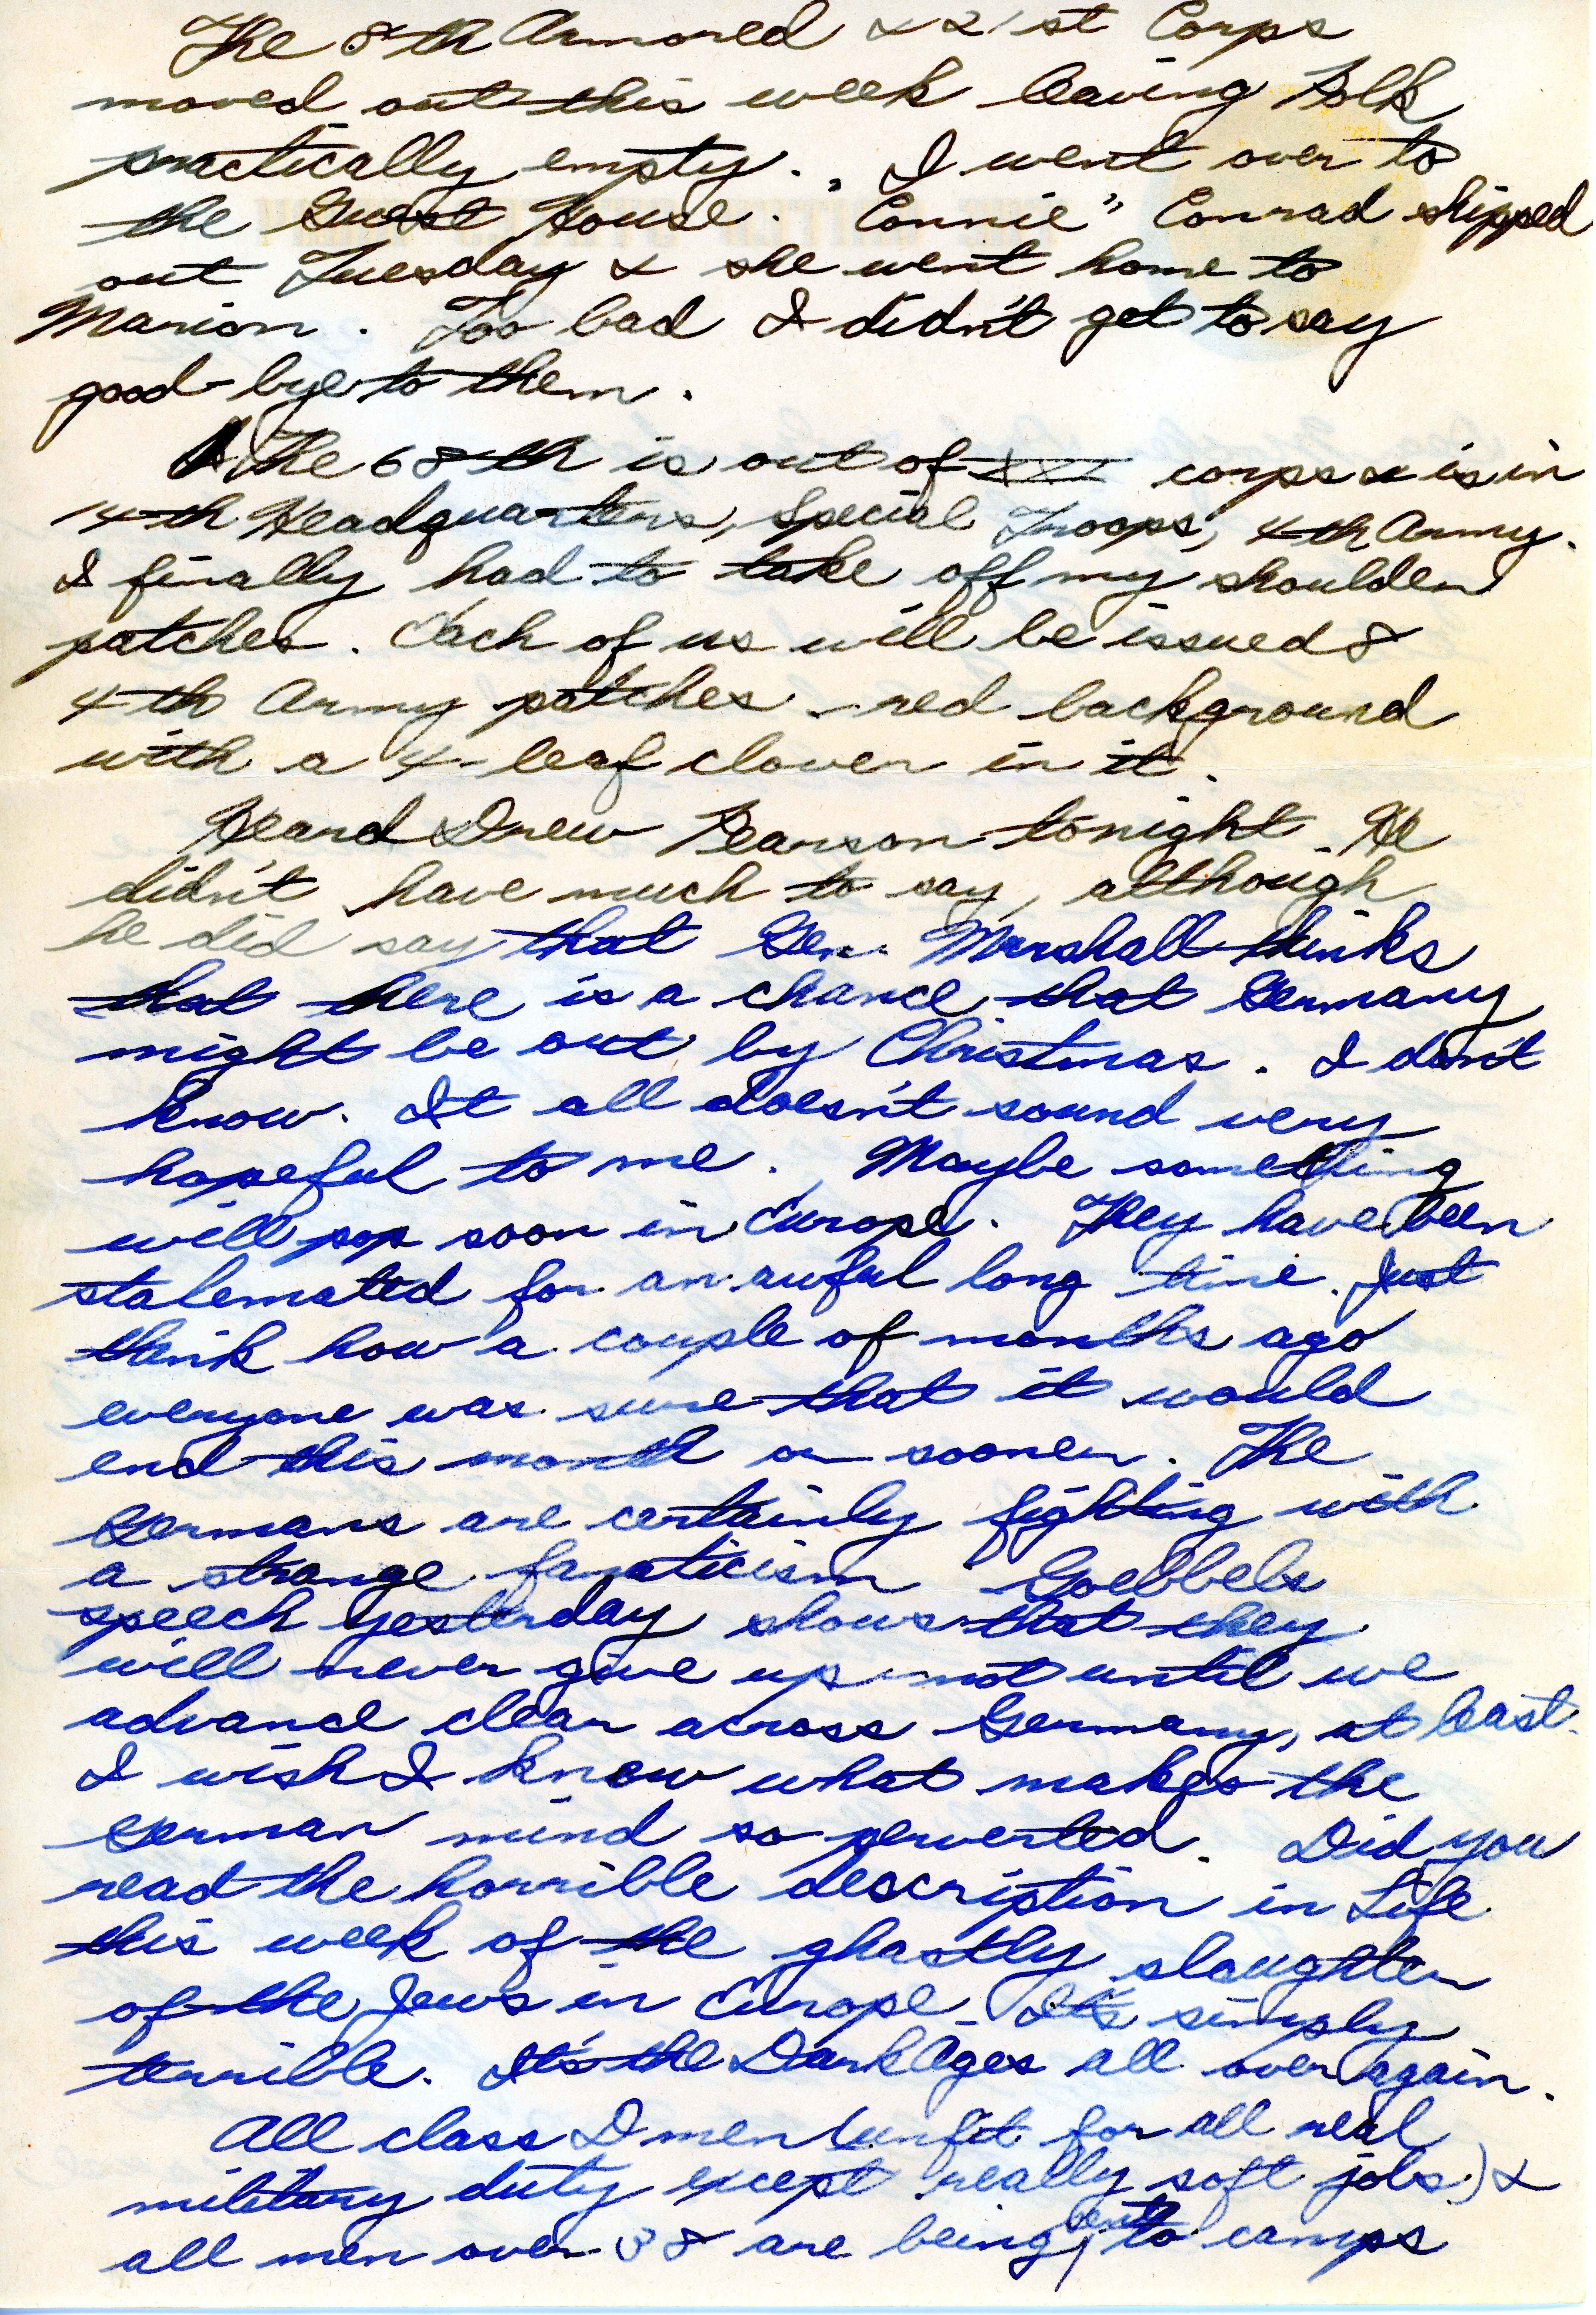 The 8th Armored & 21st Corps
moved out this week leaving Polk
practically empty. I went over to
the Guest House. "Connie" Conrad shipped
out Tuesday & she went home to
Marion. Too bad I didn't get to say
good-bye to them.
The 68th is out of XXI corps & is in
14th Headquarters, Special Troops, 4th Army.
I finally had to take off my shoulder
patches. Each of us will be issued 8
4th Army patches - red background
with a 4-leaf clover in it.
Heard Drew Pearson tonight. He
didn't have much to say, although
he did say that Gen. Marshall thinks
that there is a chance that Germany
might be out by Christmas. I don't
know. It all doesn't sound very
hopeful to me. Maybe something
will pop soon in Europe. They have been
stalemated for an awful long time. Just
think how a couple of months ago
everyone was sure that it would
end this month or sooner. The
Germans are certainly fighting with
a strange fanaticism Goebbels
speech yesterday shows that they
will never give up - not until we
advance clear across Germany, at least.
I wish I knew what makes the
German mind so perverted. Did you
read the horrible description in Life
this week of the ghastly slaughter
of the Jews in Europe - It's simply
terrible. It's the Dark Ages all over again.
All class D men (unfit for all real
military duty except really soft jobs) &
all men over 38 are being sent to camps